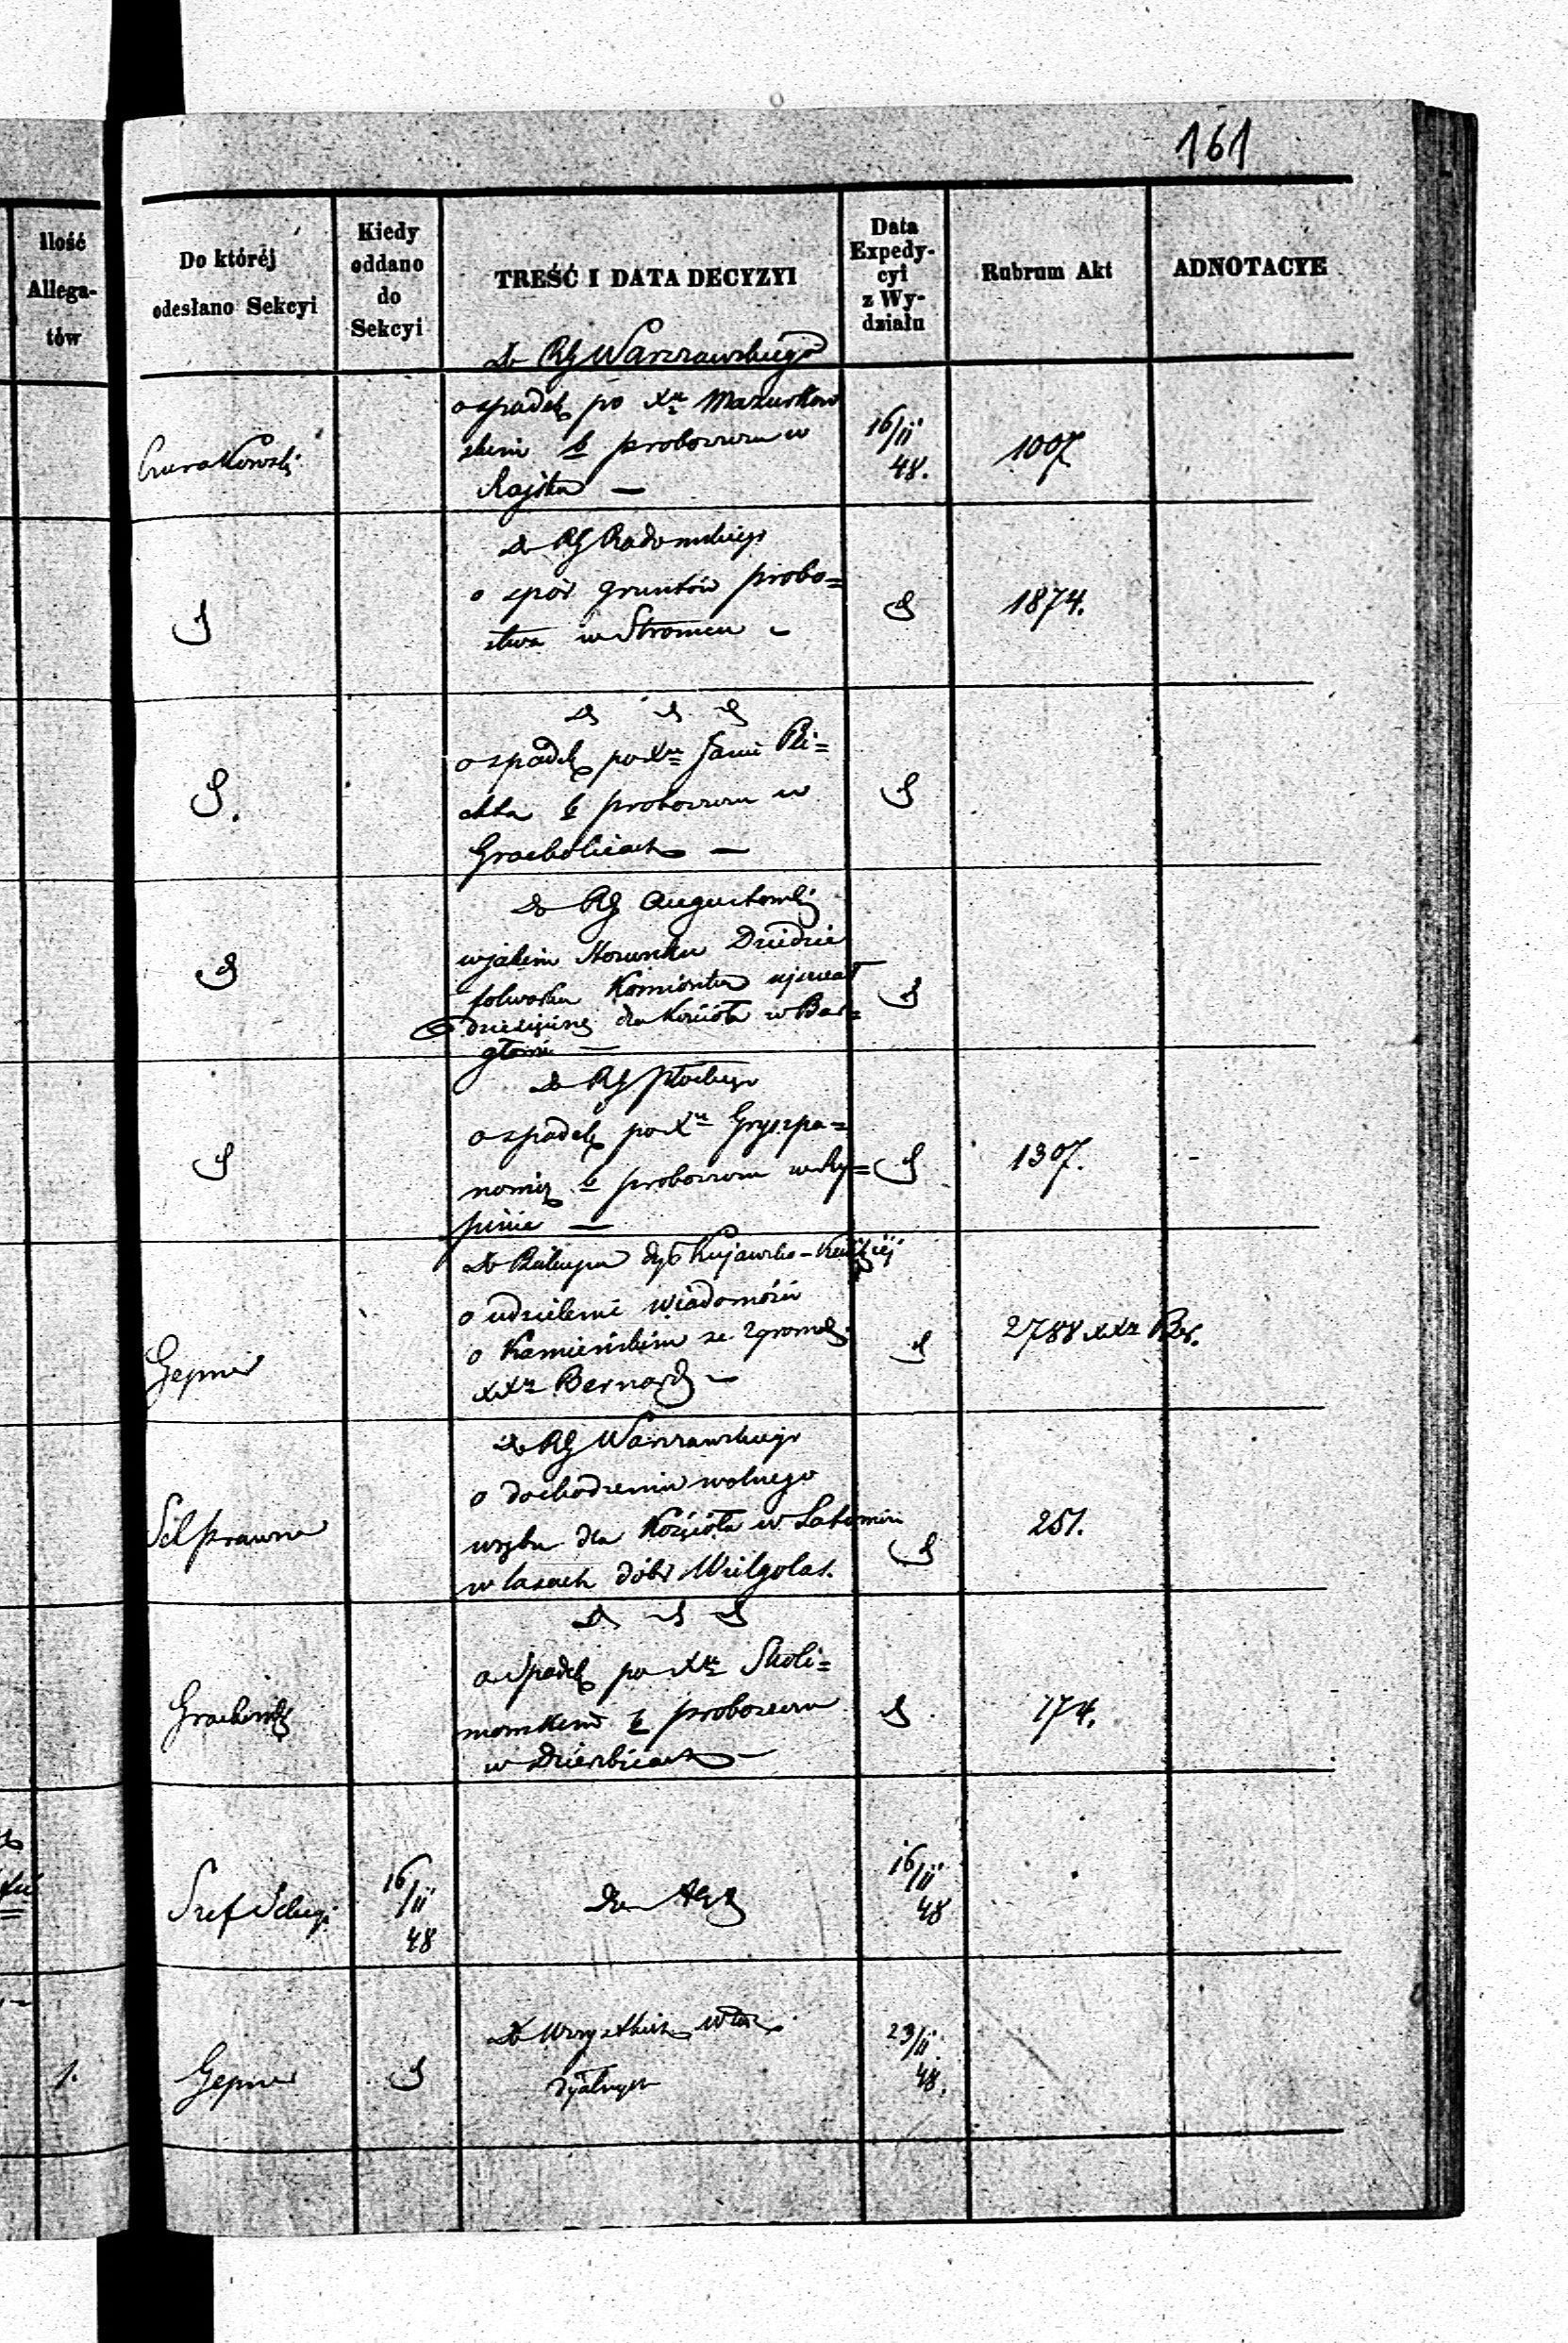 161
Ilość
Allega-
tów
Do któréj
odesłano Sekcyi
Kiedy
oddano
do
Sekcyi
TREŚĆ I DATA DECYZYI
Data
Expedy-
cyi
z Wy-
działu
Rubrum Akt
ADNOTACYE
Do RG Warszawskiego
o spadek po Xu Mazurkow
skim b proboszczu w
Rajsku —
16/II
48.
1007
Do RG Radomskiego
o spór gruntów probo=
stwa w Stromcu
1874.
o spadek po Xu Janie Pli=
chta b proboszczu w
Grocholicach —
Do RG Augustowsk
w jakim stosunku Dziedzic
folwarku
dziesięcinę dla Kościoła w Bar=
głowie —
Do RG Płockiego
o spadek po Xu Gryszpa=
nowicz b proboszczu w Ry=
pinie —
1307.
Gepner
Do Biskupa dyec Kujawsko-Kaliskiéj
o udzielenie wiadomości
o Kamieńskim ze zgromadz
XXr Bernard —
2788 XXr Ber.
Sek prawna
Do RG Warszawskiego
o dochodzenie wolnego
wrębu dla Kościoła w Latowiczu
w lasach dóbr Wielgolas.
251.
o Spadek po Xu Skoli=
mowskim b proboszczu
w Dzierzbicach —
174.
Szef
16/II
48
16/II
48
1.
Gepner
Do Wszystkich Władz
dyalnych
23/II
48.